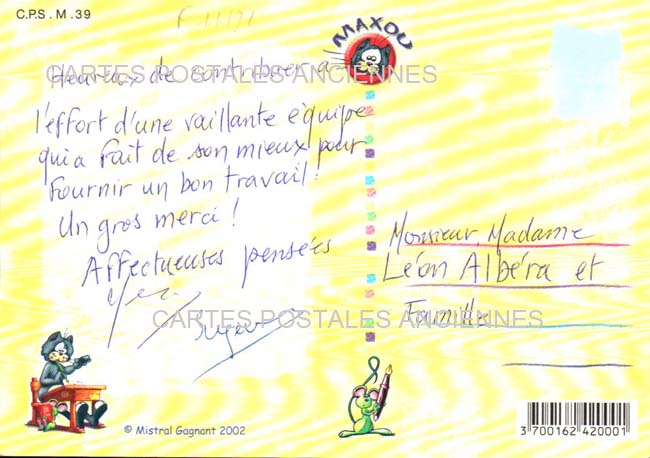 C.P.S. M. 39
MAXOU
Heureux de contribuer à
CARTES POSTALES ANCIENNES
l'effort d'une vaillante équipe
qui a fait de son mieux pour
fournir un bon travail.
Un gros merci !
Affectueuses pensées
Monsieur, Madame
Léon Albéra et
Famille
CARTES POSTALES ANCIENNES
© Mistral Gagnant 2002
3 700162 420001